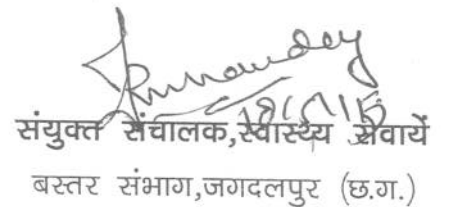 संयुक्त संचालक,स्वास्थ्य सेवायें
बस्तर संभाग,जगदलपुर (छ.ग.)